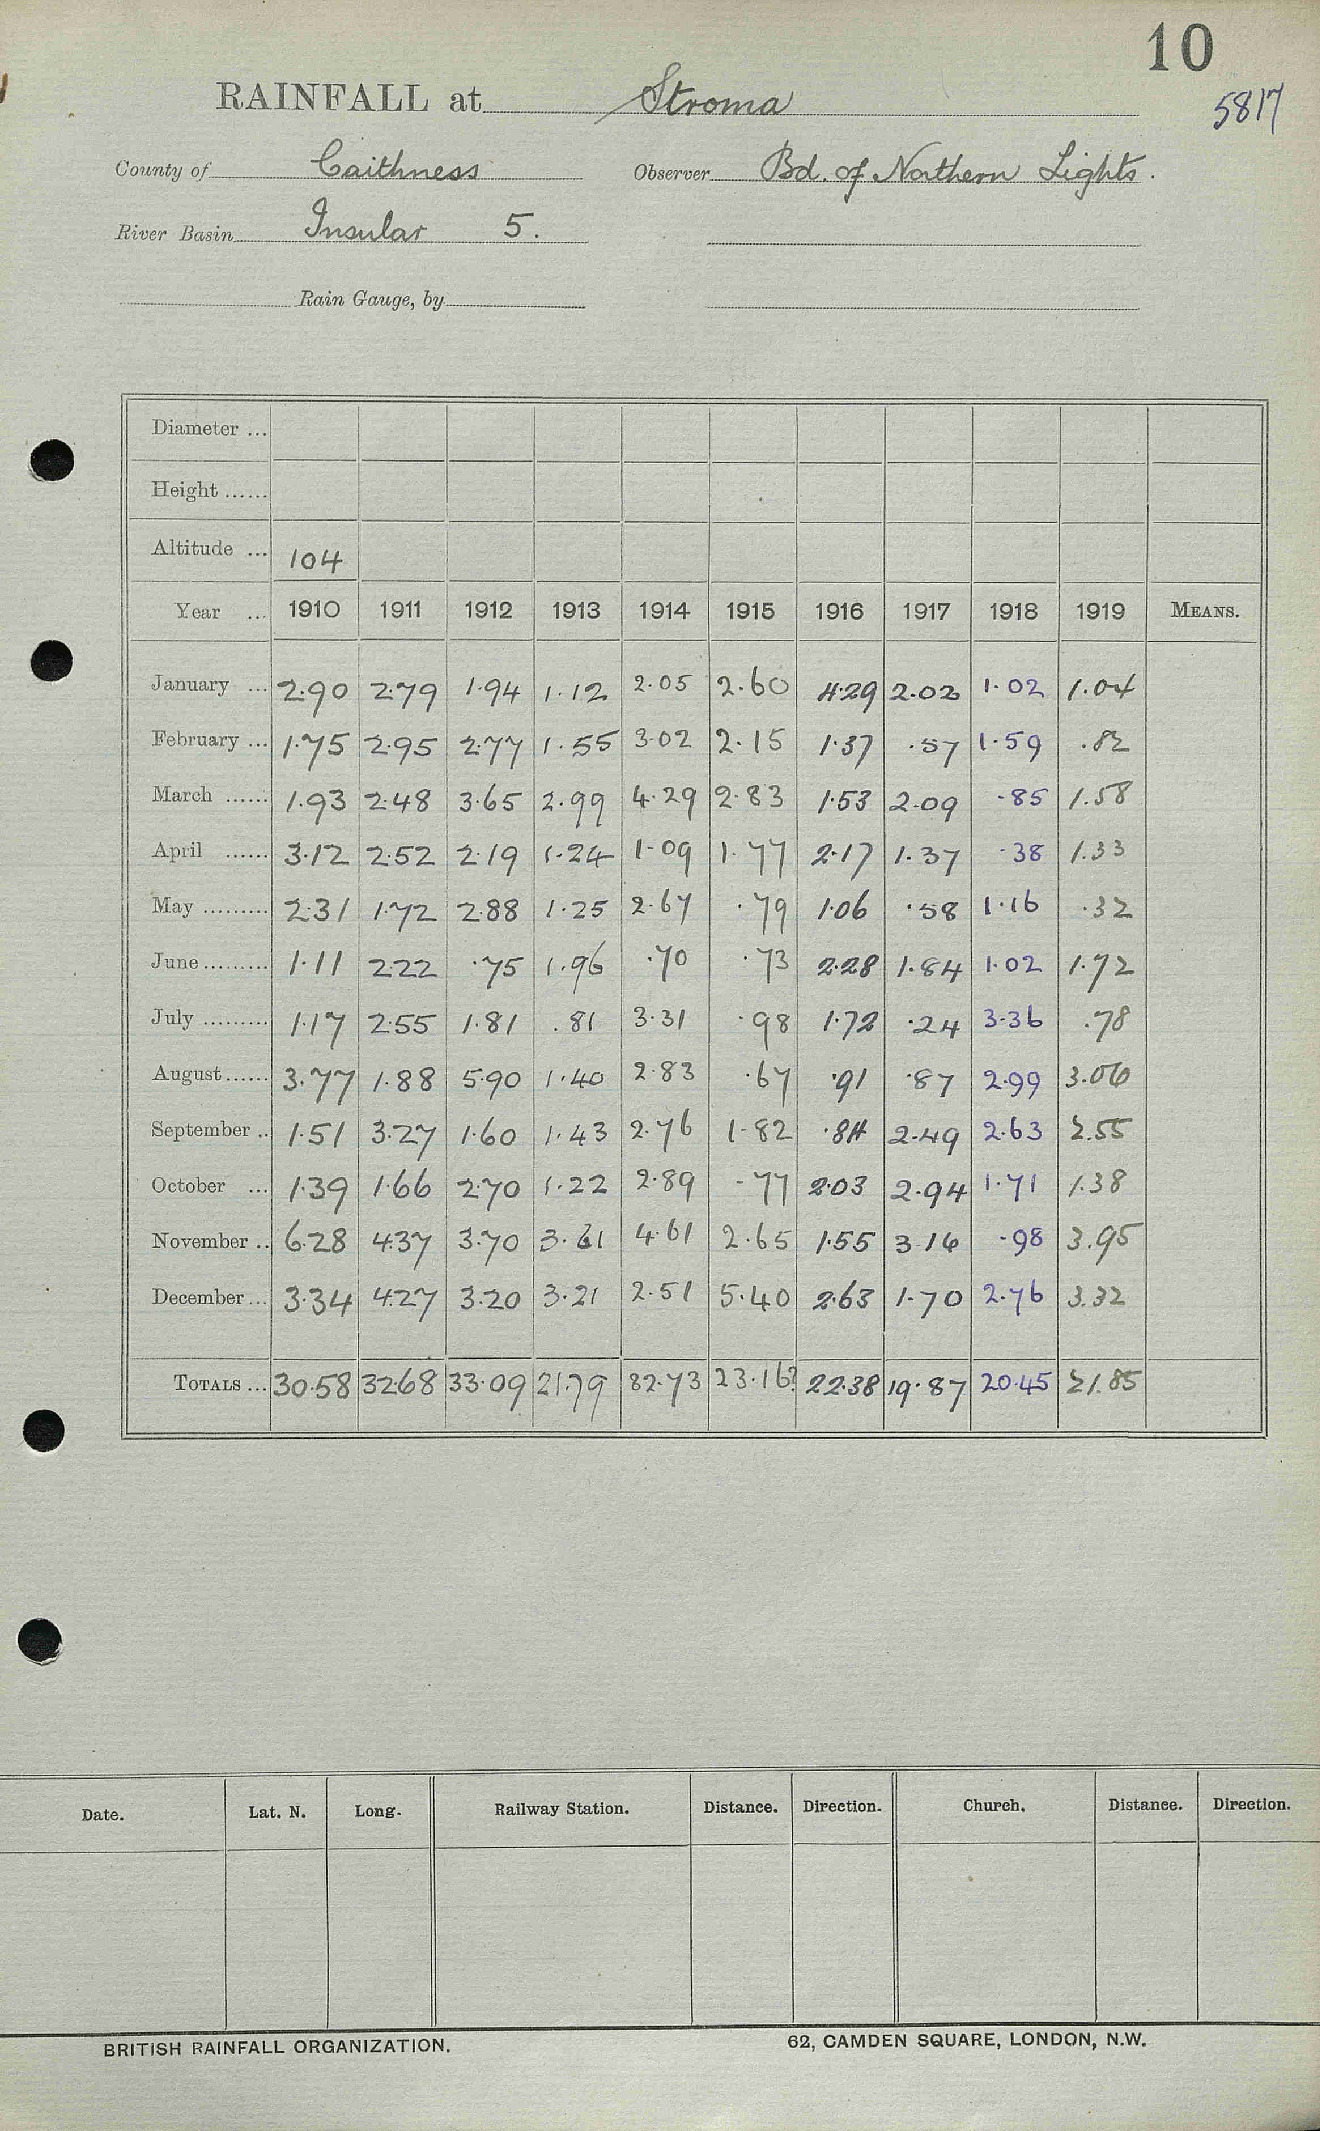 10
RAINFALL at Stroma
5817
County of Caithness Observer Bd. of Northern Lights.
River Basin Insular 5.
Rain Gauge, by
Diameter ...
Height ......
Altitude ... 104
Year ... 1910 1911 1912 1913 1914 1915 1916 1917 1918 1919 MEANS.
January ... 2.90 2.79 1.94 1.12 2.05 2.60 4.29 2.02 1.02 1.04
February ... 1.75 2.95 2.77 1.55 3.02 2.15 1.37 .57 1.59 .82
March ...... 1.93 2.48 3.65 2.99 4.29 2.83 1.53 2.09 .85 1.58
April ...... 3.12 2.52 2.19 1.24 1.09 1.77 2.17 1.37 .38 1.33
May ......... 2.31 1.72 2.88 1.25 2.67 .79 1.06 .58 1.16 .32
June ......... 1.11 2.22 .75 1.96 .70 .73 2.28 1.84 1.02 1.72
July ......... 1.17 2.55 1.81 .81 3.31 .98 1.72 .24 3.36 .78
August ...... 3.77 1.88 5.90 1.40 2.83 .67 .91 .87 2.99 3.06
September .. 1.51 3.27 1.60 1.43 2.76 1.82 .84 2.49 2.63 2.55
October ... 1.39 1.66 2.70 1.22 2.89 .77 2.03 2.94 1.71 1.38
November .. 6.28 4.37 3.70 3.61 4.61 2.65 1.55 3.16 .98 3.95
December ... 3.34 4.27 3.20 3.21 2.51 5.40 2.63 1.70 2.76 3.32
TOTALS ... 30.58 32.68 33.09 21.79 32.73 23.16? 22.38 19.87 20.45 21.85
Date. Lat. N. Long. Railway Station. Distance. Direction. Church. Distance. Direction.
BRITISH RAINFALL ORGANIZATION. 62, CAMDEN SQUARE, LONDON, N.W.